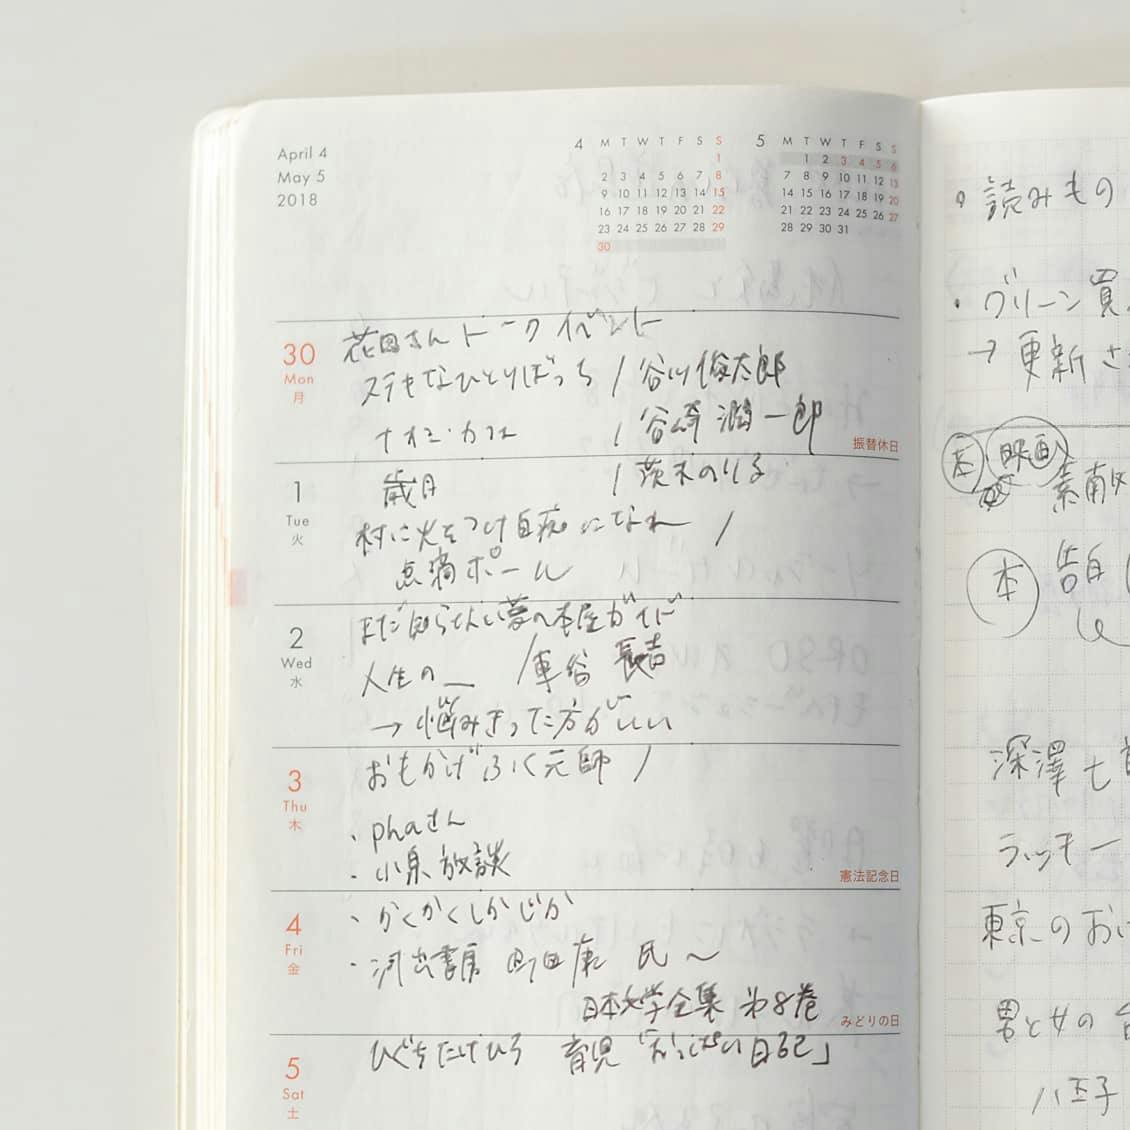 April 4
May 5
2018
4 M T W T F S S
1
2 3 4 5 6 7 8
9 10 11 12 13 14 15
16 17 18 19 20 21 22
23 24 25 26 27 28 29
30
5 M T W T F S S
1 2 3 4 5 6
7 8 9 10 11 12 13
14 15 16 17 18 19 20
21 22 23 24 25 26 27
28 29 30 31
30
Mon
月
花田さん トークイベント
ステキなひとりぼっち / 谷川俊太郎
ナオミ・カフェ / 谷崎潤一郎
振替休日
1
Tue
火
歳月 / 茨木のり子
村に火をつけ白痴になれ /
点滴ポール
2
Wed
水
まだ知らない夢の本屋ガイド
人生の__ / 車谷長吉
→ 悩みきった方がいい
3
Thu
木
おもかげ ふく元師 /
・phaさん
・小泉放談
憲法記念日
4
Fri
金
・かくかくしかじか
・河出書房 町田康 氏 〜
日本文学全集 第8巻
みどりの日
5
Sat
土
ひぐちたけひろ 育児「おっぱい日記」
・読みもの
・グリーン買
→ 更新さ
本 映画
本 告白
し
深澤七
ラッキー
東京のお
男と女の
八王子